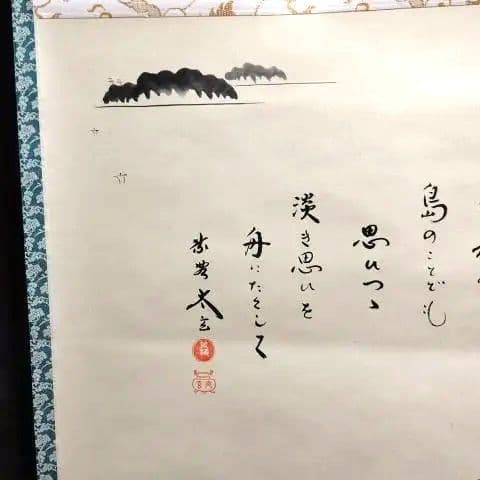 島のことども
思ひつゝ
淡き思ひを
舟にたくして
太玄